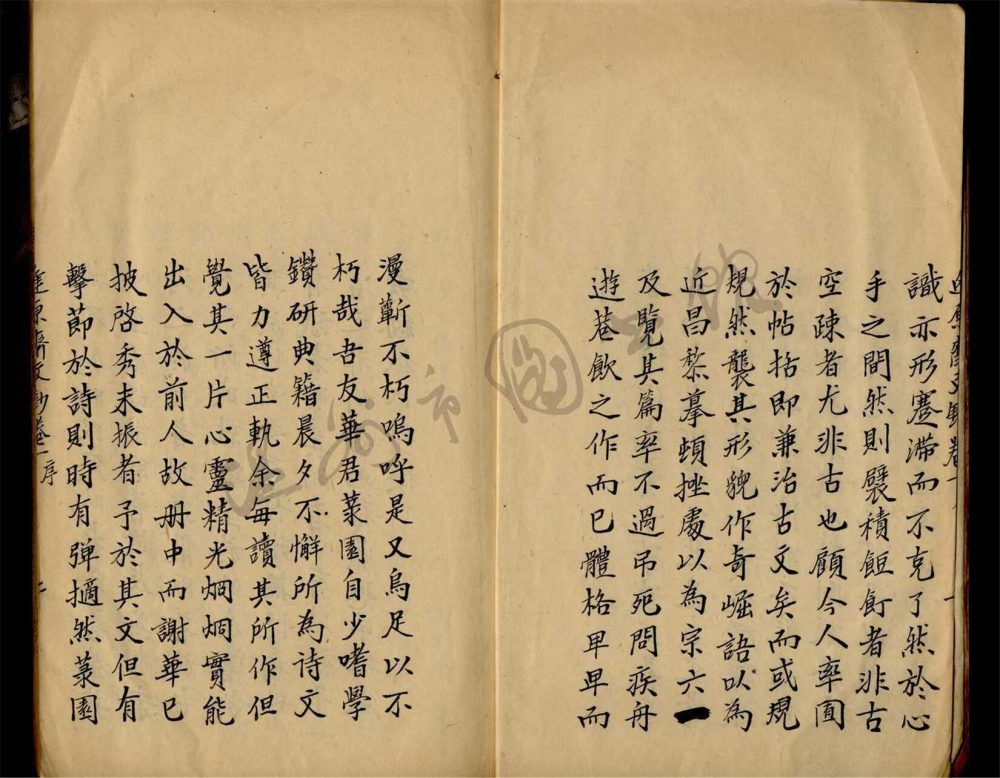 識亦形蹇滯而不克了然於心
手之間然則襞積飣餖者非古
空疎者尤非古也顧今人率囿
於帖括即兼治古文矣而或規
規然襲其形貌作奇崛語以為
近昌黎摹頓挫處以為宗六一
及覽其篇率不過弔死問疾舟
遊巷飲之作而已體格卑卑而
漫蘄不朽嗚呼是又烏足以不
朽哉吾友華君菉園自少嗜學
鑽研典籍晨夕不懈所為詩文
皆力遵正軌余每讀其所作但
覺其一片心靈精光烱烱實能
出入於前人故册中而謝華已
披啓秀未振者予於其文但有
擊節於詩則時有弹擿然菉園
原齋文鈔卷一序
二